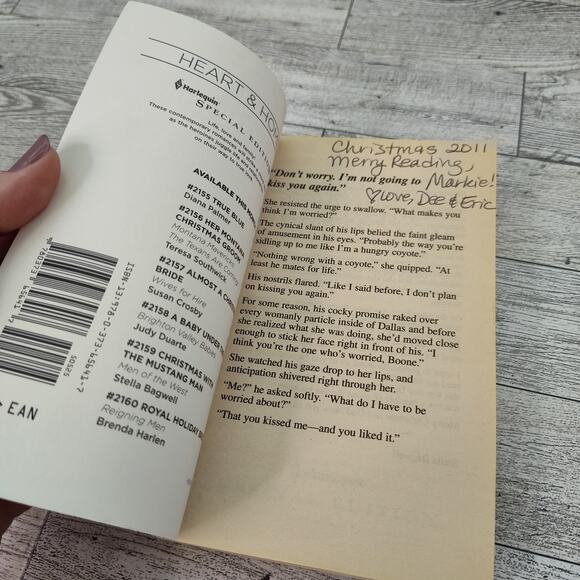 HEART & HO
Harlequin
SPECIAL EDITION
Life, love and family:
These contemporary romances will strike a
as the heroines juggle life and
on their way to true
AVAILABLE THIS MON
#2155 TRUE BLUE
Diana Palmer
#2156 HER MONTANA
CHRISTMAS GROOM
Montana Mavericks:
The Texans Are Coming
Teresa Southwick
#2157 ALMOST A CHRIS
BRIDE
Wives for Hire
Susan Crosby
#2158 A BABY UNDER
Brighton Valley Babies
Judy Duarte
#2159 CHRISTMAS WITH
THE MUSTANG MAN
Men of the West
Stella Bagwell
#2160 ROYAL HOLIDAY
Reigning Men
Brenda Harlen
ISBN-13: 978-0-373-65641-7
50525
EAN
Christmas 2011
Merry Reading,
Markie!
♡Love, Dee & Eric
"Don't worry. I'm not going to
kiss you again."
She resisted the urge to swallow. "What makes you
think I'm worried?"
The cynical slant of his lips belied the faint gleam
of amusement in his eyes. "Probably the way you're
sidling up to me like I'm a hungry coyote."
"Nothing wrong with a coyote," she quipped. "At
least he mates for life."
His nostrils flared. "Like I said before, I don't plan
on kissing you again."
For some reason, his cocky promise raked over
every womanly particle inside of Dallas and before
she realized what she was doing, she'd moved close
enough to stick her face right in front of his. "I
think you're the one who's worried, Boone."
She watched his gaze drop to her lips, and
anticipation shivered right through her.
"Me?" he asked softly. "What do I have to be
worried about?"
"That you kissed me—and you liked it."